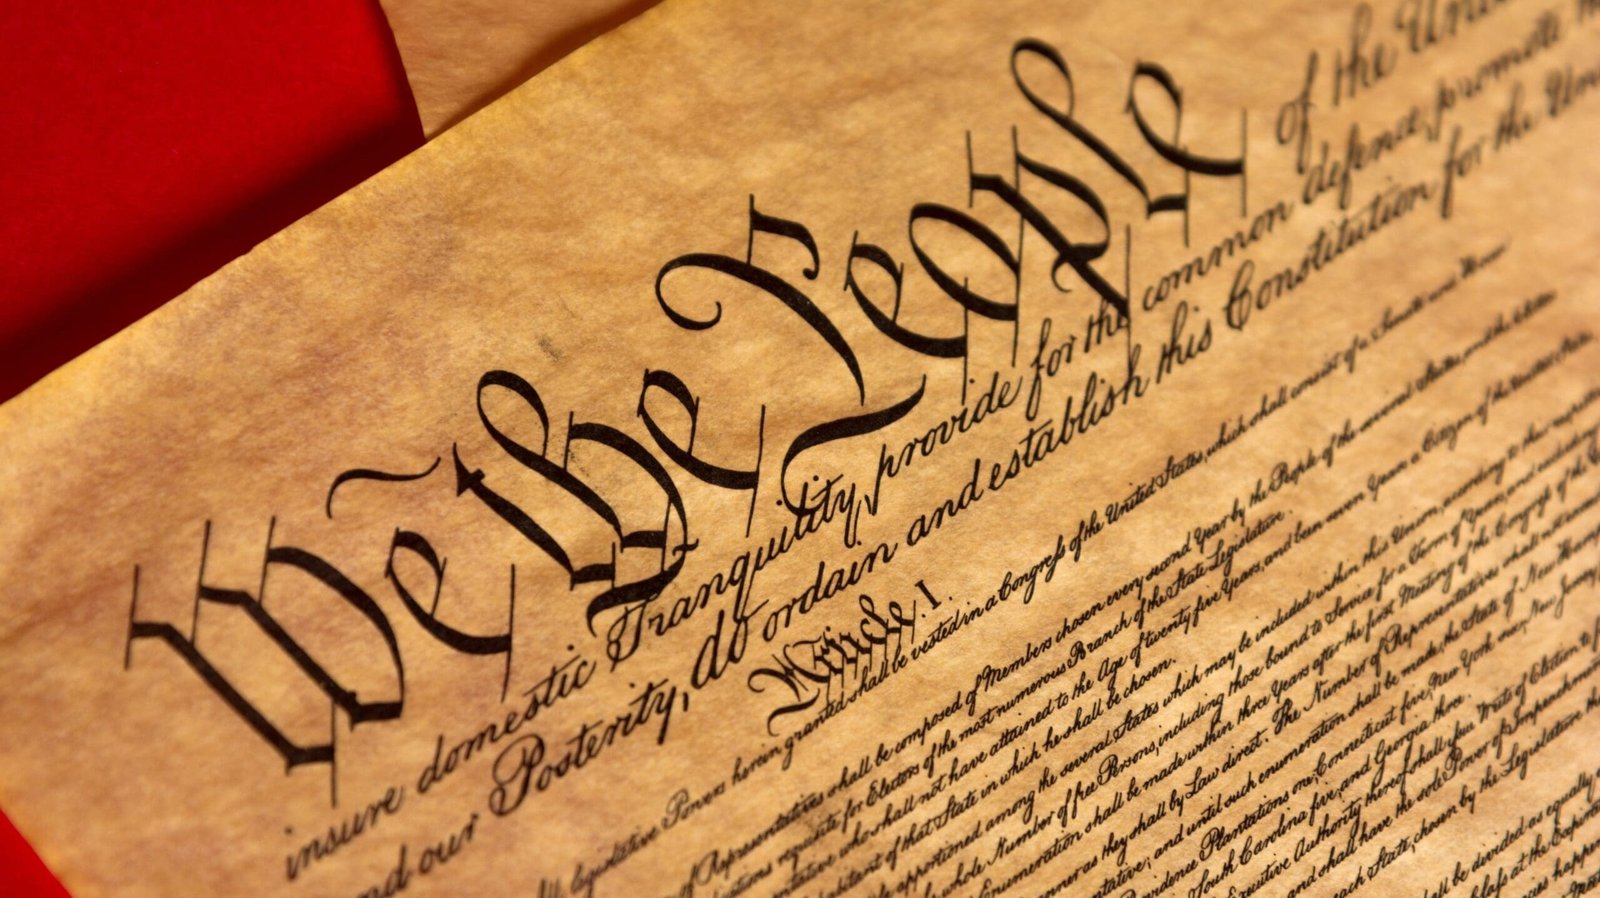 We the People of the Un
insure domestic Tranquility, provide for the common defence, promote
and our Posterity, do ordain and establish this Constitution for the Un
Article. I.
legislative Powers herein granted shall be vested in a Congress of the United States, which shall consist of a Senate and
of Representatives shall be composed of Members chosen every second Year by the People of the several States, and the
requisite for Electors of the most numerous Branch of the State Legislature.
who shall not have attained to the Age of twenty five Years, and been seven Years a Citizen of the United States,
of that State in which he shall be chosen.
apportioned among the several States which may be included within this Union, according to their
whole Number of free Persons, including those bound to Service for a Term of Years, and
Enumeration shall be made within three Years after the first Meeting of the Congress of the
as they shall by Law direct. The Number of Representatives shall not
and until such enumeration shall be made, the State of New Hamp
Plantations one, Connecticut five, New York six, New Jersey
South Carolina five, and Georgia three.
Executive Authority thereof shall issue Writs of Election to
and shall have the sole Power of Impeachment
each State, chosen by the Legislature
shall be divided as equally
at the Expira
happen